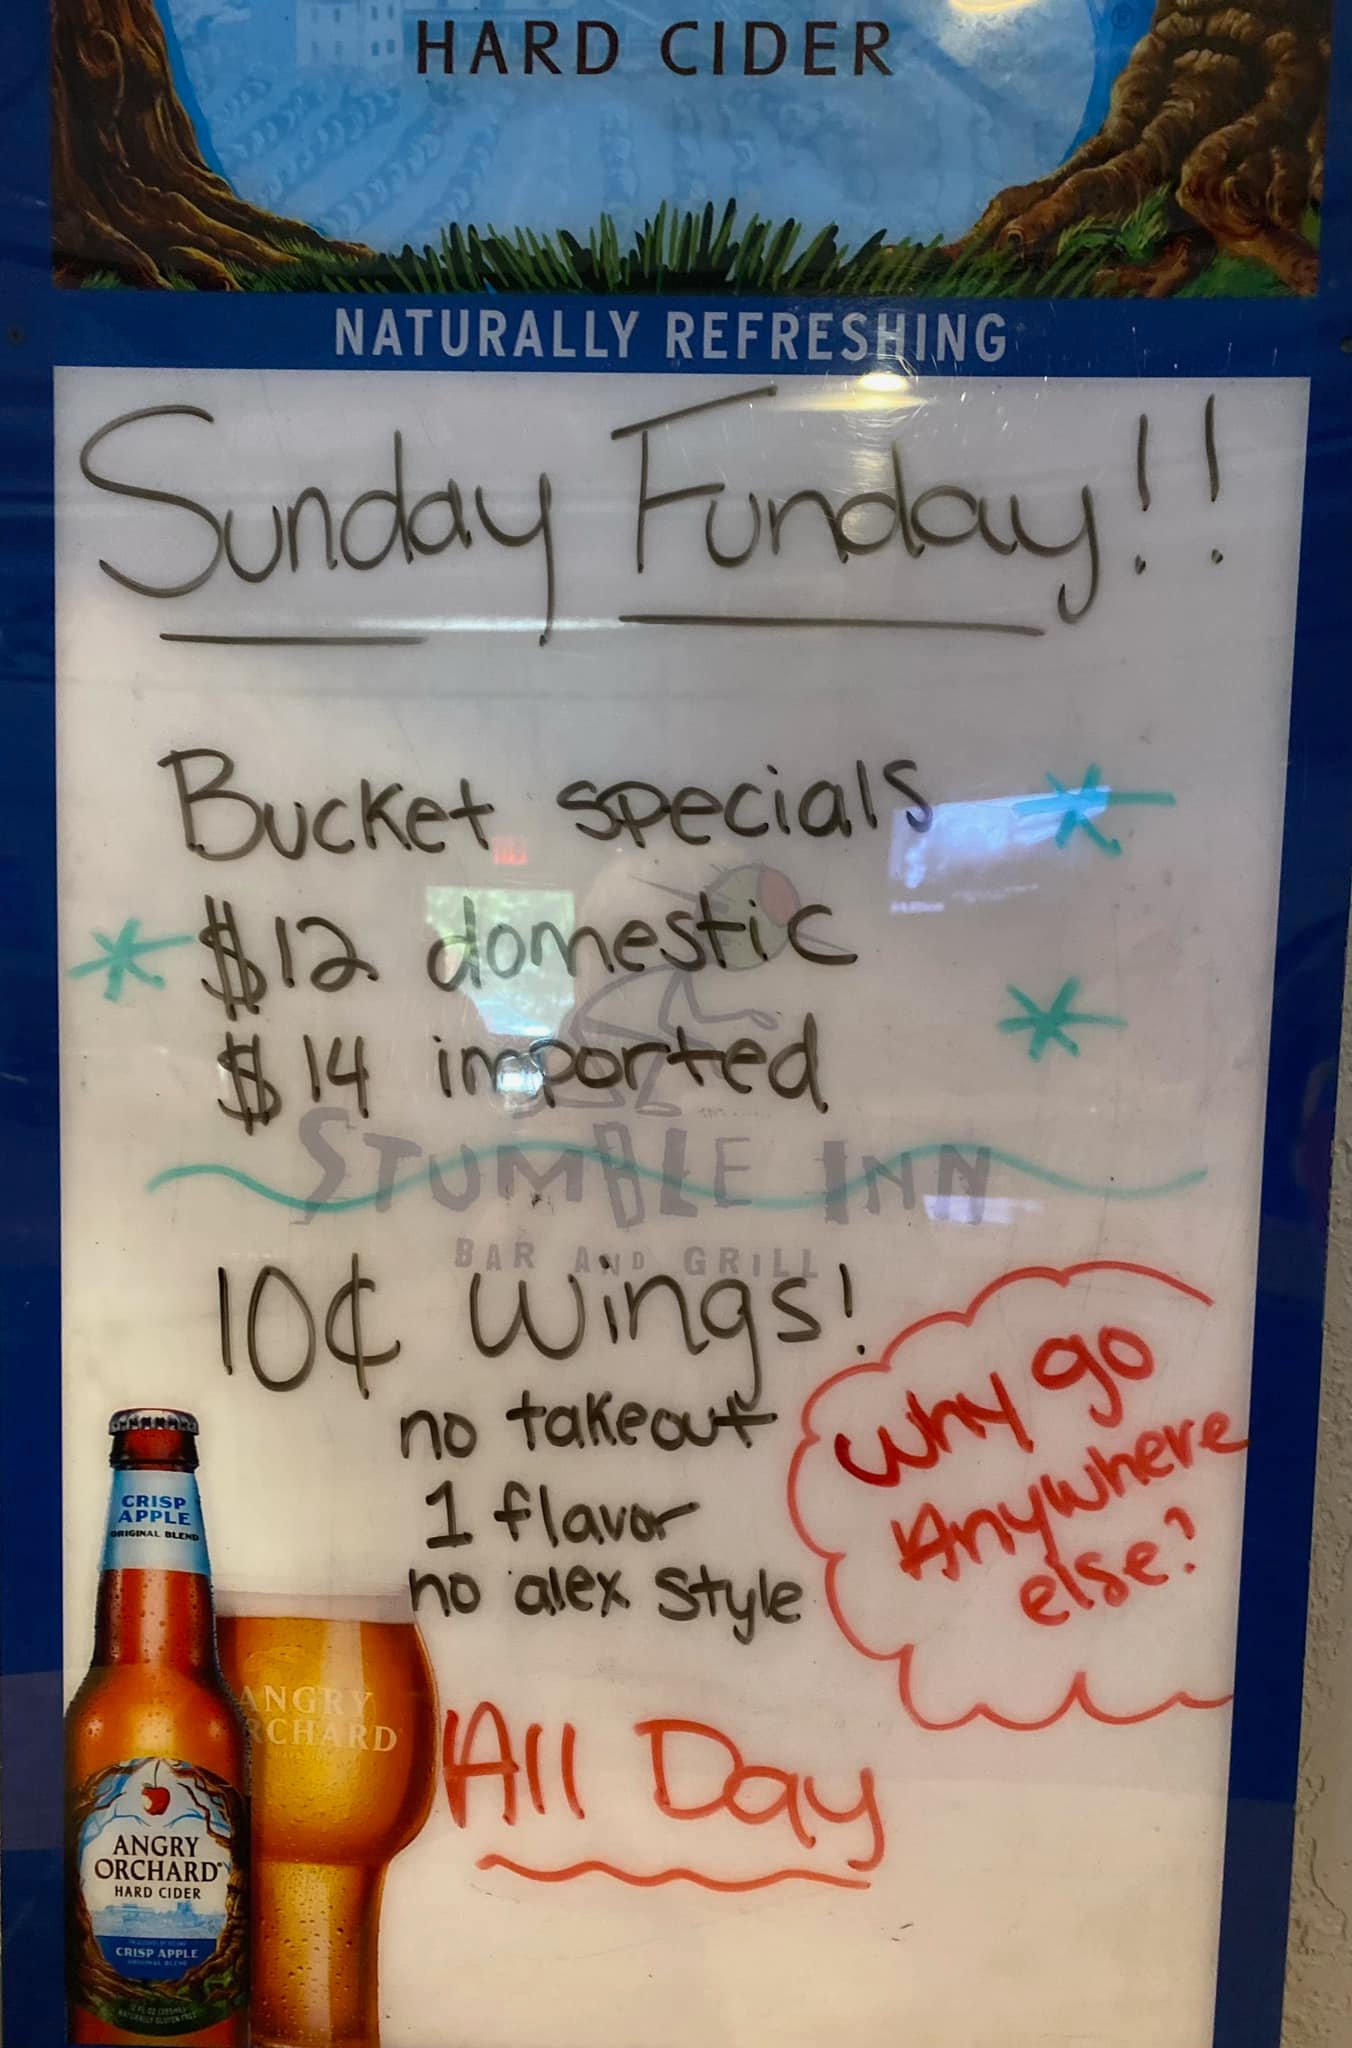 HARD CIDER
NATURALLY REFRESHING
Sunday Funday!!
Bucket specials
$12 domestic
$14 imported
STUMBLE INN
BAR AND GRILL
10¢ Wings!
no takeout
1 flavor
no alex style
Why go
Anywhere
else?
All Day
CRISP
APPLE
ORIGINAL BLEND
ANGRY
ORCHARD
ANGRY
ORCHARD®
HARD CIDER
CRISP APPLE
ORIGINAL BLEND